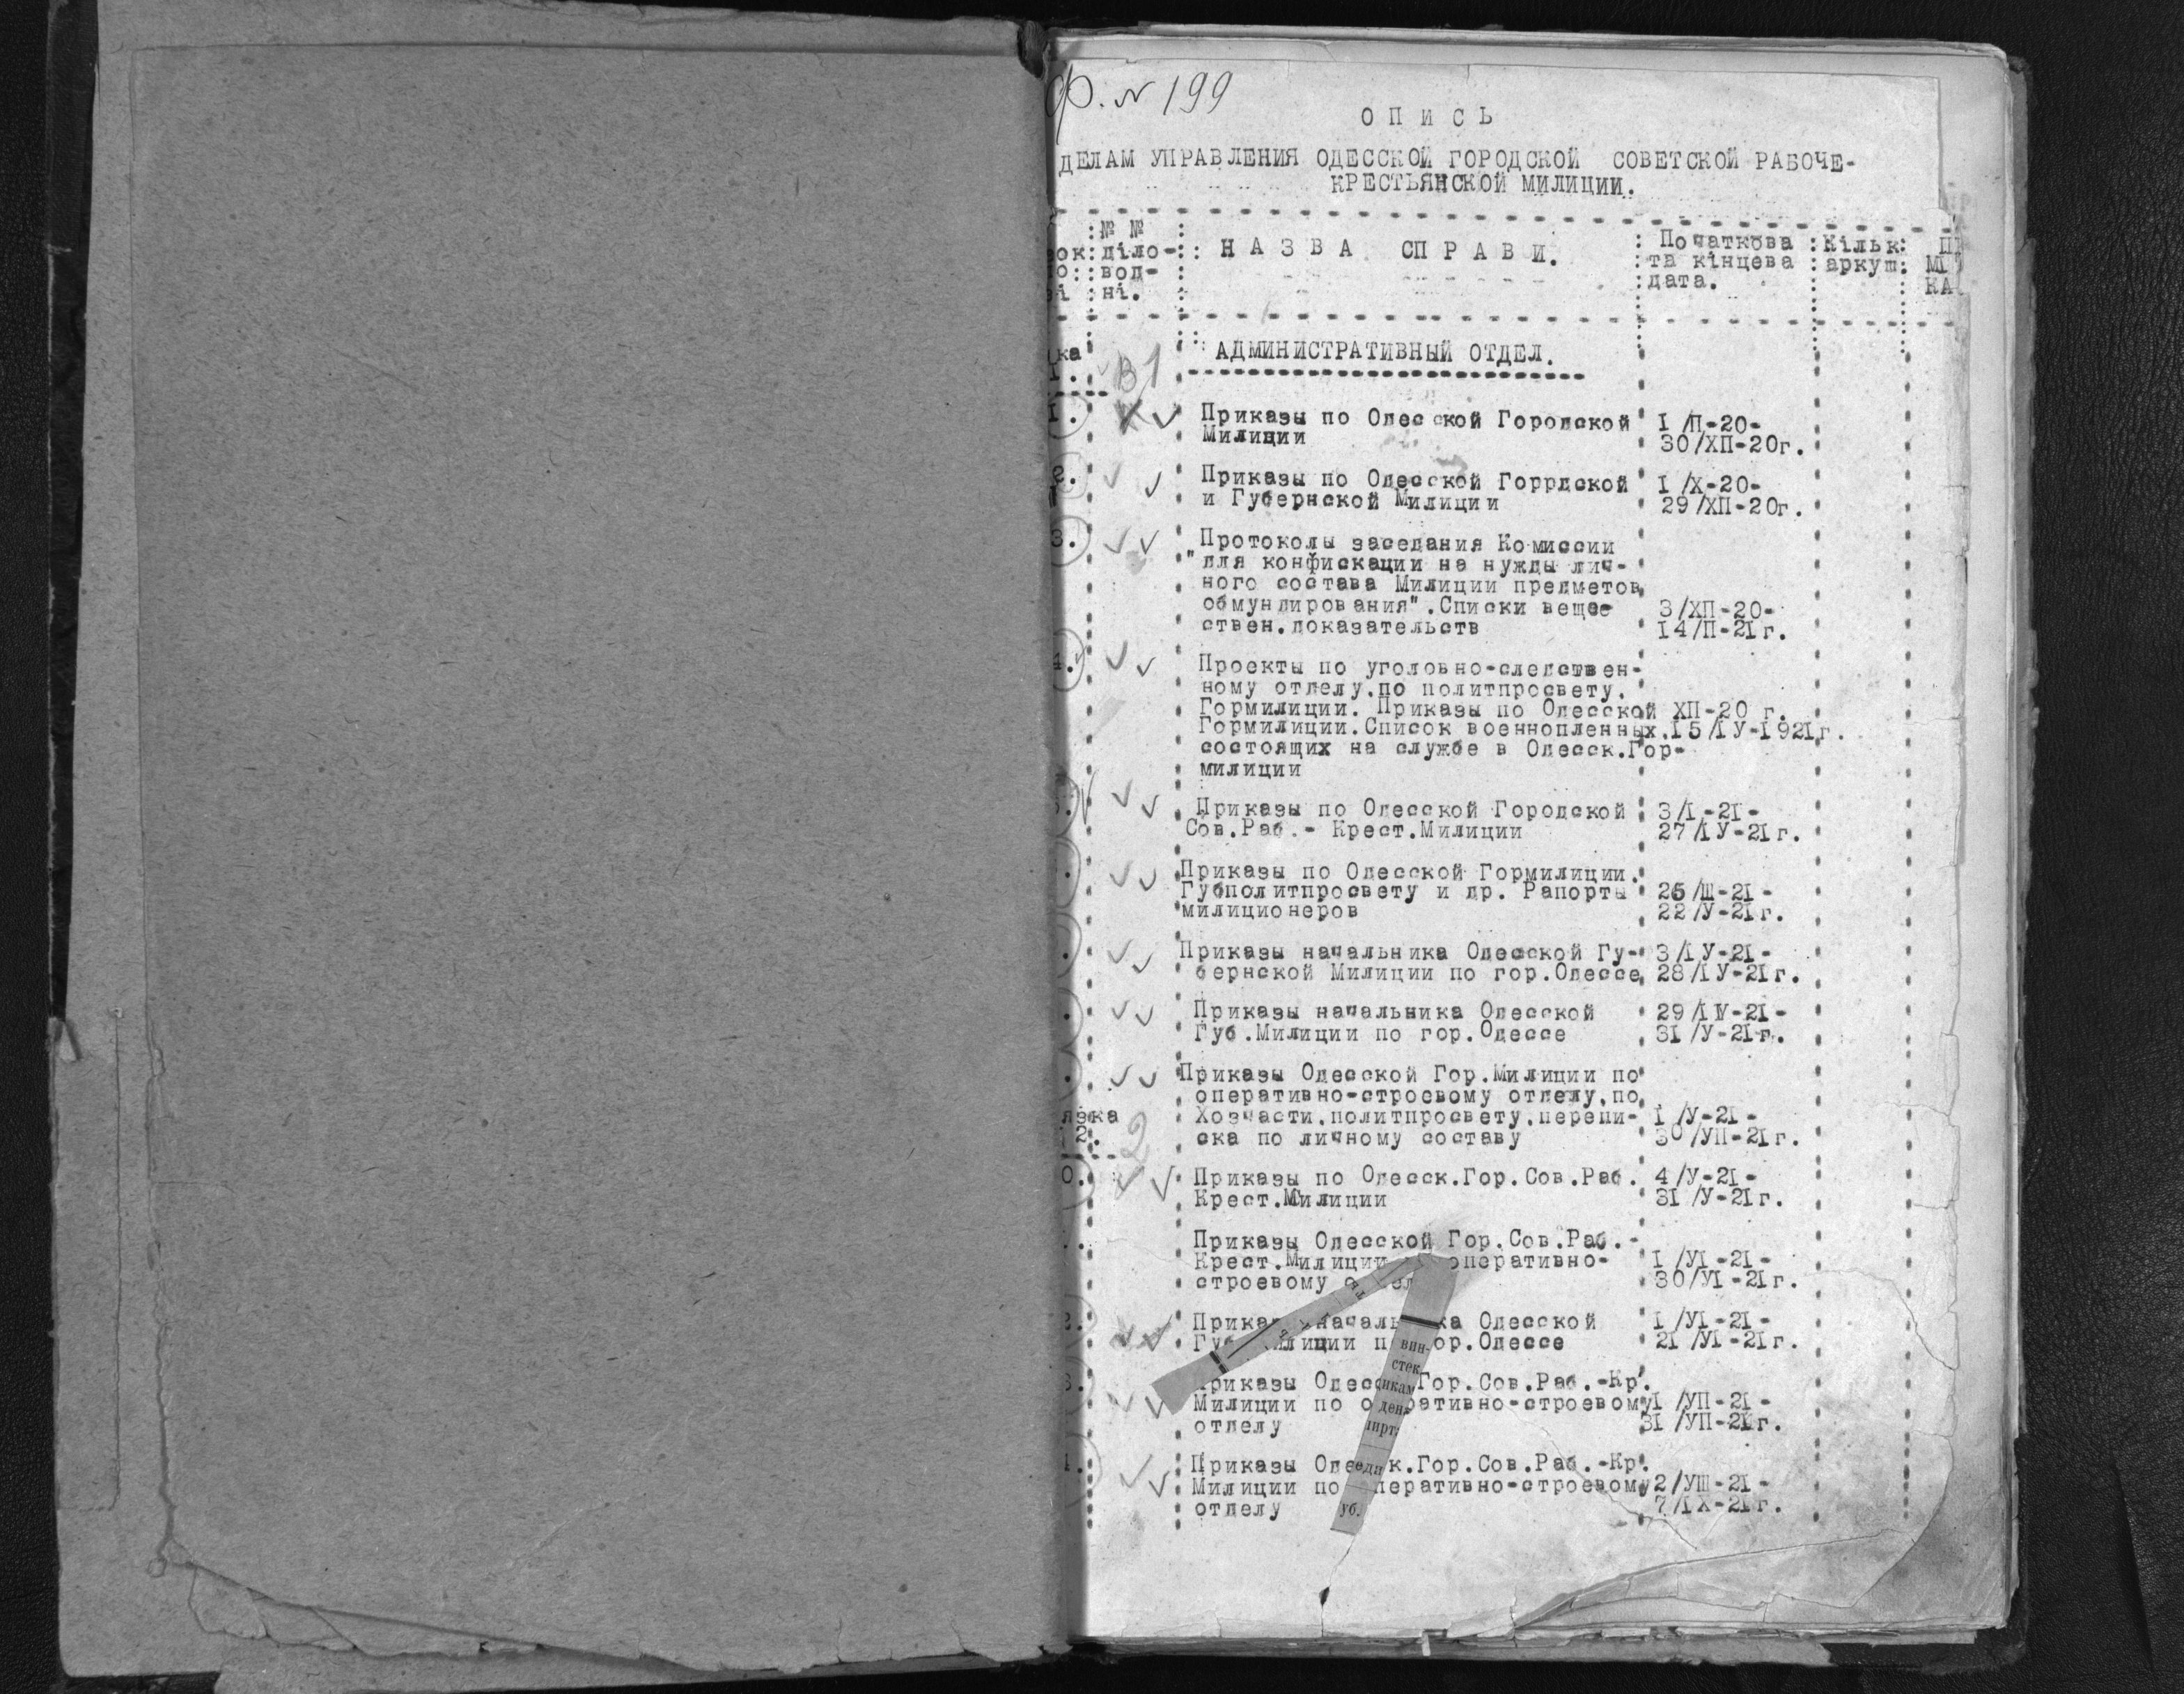 ф. № 199
ОПИСЬ
ДЕЛАМ УПРАВЛЕНИЯ ОДЕССКОЙ ГОРОДСКОЙ СОВЕТСКОЙ РАБОЧЕ-
КРЕСТЬЯНСКОЙ МИЛИЦИИ.
№ №
діло-
вод-
ні.
НАЗВА СПРАВИ.
Початкова
та кінцева
дата.
Кільк
аркуш
АДМИНИСТРАТИВНЫЙ ОТДЕЛ.
1. Приказы по Одесской Городской 1/П-20-
Милиции 30/ХП-20г.
2. Приказы по Одесской Горрдской 1/Х-20-
и Губернской Милиции 29/ХП-20г.
3. Протоколы заседания Комиссии
"для конфискации на нужды лич-
ного состава Милиции предметов
обмундирования". Списки веще- 3/ХП-20-
ствен.доказательств 14/П-21г.
4. Проекты по уголовно-следствен-
ному отделу,по политпросвету,
Гормилиции. Приказы по Одесской ХП-20 г.
Гормилиции.Список военнопленных, 15/1У-1921г.
состоящих на службе в Одесск.Гор-
милиции
Приказы по Одесской Городской 3/1-21-
Сов.Раб.- Крест.Милиции 27/1У-21г.
Приказы по Одесской Гормилиции,
Губполитпросвету и др. Рапорты 25/Ш-21-
милиционеров 22/У-21г.
Приказы начальника Одесской Гу- 3/1У-21-
бернской Милиции по гор.Одессе 28/1У-21г.
Приказы начальника Одесской 29/1V-21-
Губ.Милиции по гор.Одессе 31/У-21г.
Приказы Одесской Гор.Милиции по
оперативно-строевому отделу,по
Хозчасти,политпросвету,перепи- 1/У-21-
ска по личному составу 30/УП-21г.
2
0. Приказы по Одесск.Гор.Сов.Раб. 4/У-21-
Крест.Милиции 31/У-21г.
Приказы Одесской Гор.Сов.Раб.-
Крест.Милиции оперативно- 1/У1-21-
строевому 30/У1-21г.
2. Одесской 1/У1-21-
ор.Одессе 21/У1-21г.
3. Приказы Гор.Сов.Раб.-Кр.
Милиции по строевому 1/УП-21-
отделу 31/УП-21г.
Приказы к.Гор.Сов.Раб.-Кр.
Милиции по перативно-строевому 2/УШ-21-
отделу 7/1Х-21г.